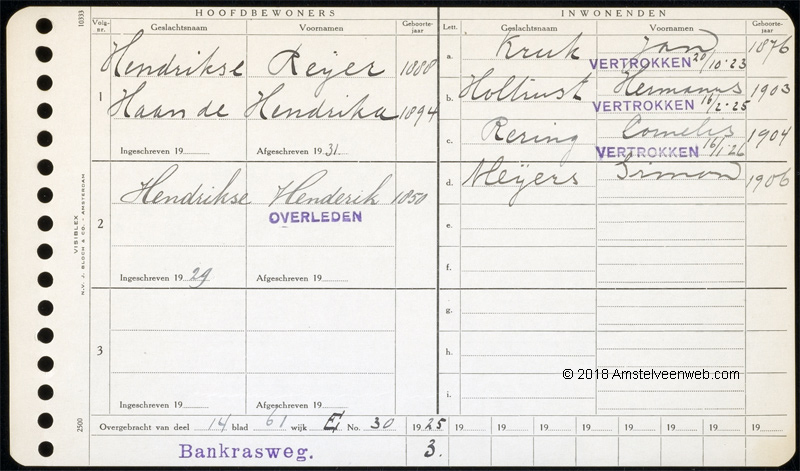 HOOFDBEWONERS
Volg-nr. Geslachtsnaam Voornamen Geboorte-jaar
1 Hendrikse Reijer 1888
Haan de Hendrika 1894
Ingeschreven 19 Afgeschreven 19 31.
2 Hendrikse Henderik 1850
OVERLEDEN
Ingeschreven 19 29 Afgeschreven 19
3
Ingeschreven 19 Afgeschreven 19
INWONENDEN
Lett. Geslachtsnaam Voornamen Geboorte-jaar
a. Kruk Jan 1876
VERTROKKEN 20/10-23
b. Holtrust Hermanus 1903
VERTROKKEN 16/2-25
c. Rering Cornelis 1904
VERTROKKEN 16/1-26
d. Meijers Simon 1906
e.
f.
g.
h.
i.
© 2018 Amstelveenweb.com
Overgebracht van deel 14 blad 61 wijk E No. 30 19 25 19 19 19 19 19 19 19 19
Bankrasweg. 3.
10333
VISIBLEX
N.V. J. BLOCH & CO. - AMSTERDAM
2500